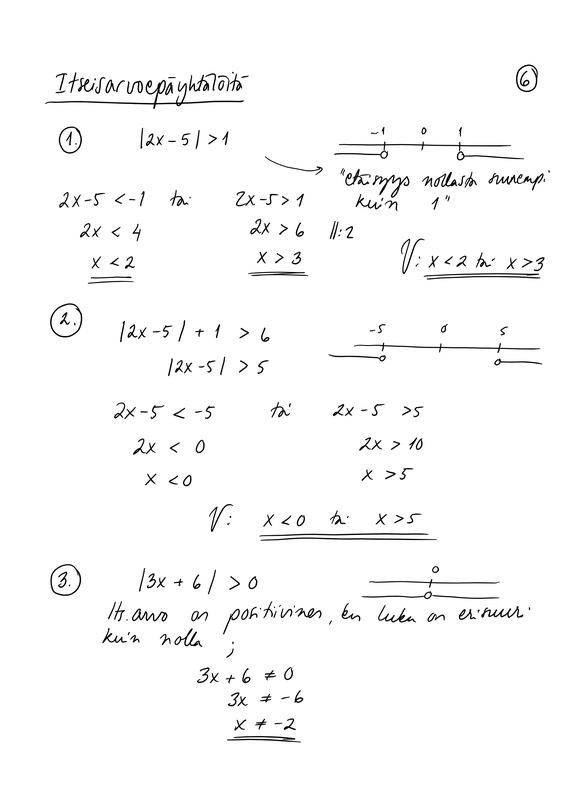 Itseisarvoepäyhtälöitä
6
1. |2x-5| > 1
-1 0 1
"etäisyys nollasta suurempi
kuin 1"
2x-5 < -1 tai 2x-5 > 1
2x < 4 2x > 6 ||:2
x < 2 x > 3
V: x < 2 tai x > 3
2. |2x-5| + 1 > 6
-5 0 5
|2x-5| > 5
2x-5 < -5 tai 2x-5 > 5
2x < 0 2x > 10
x < 0 x > 5
V: x < 0 tai x > 5
3. |3x + 6| > 0
0
Its.arvo on positiivinen, kun luku on erisuuri
kuin nolla ;
3x + 6 ≠ 0
3x ≠ -6
x ≠ -2